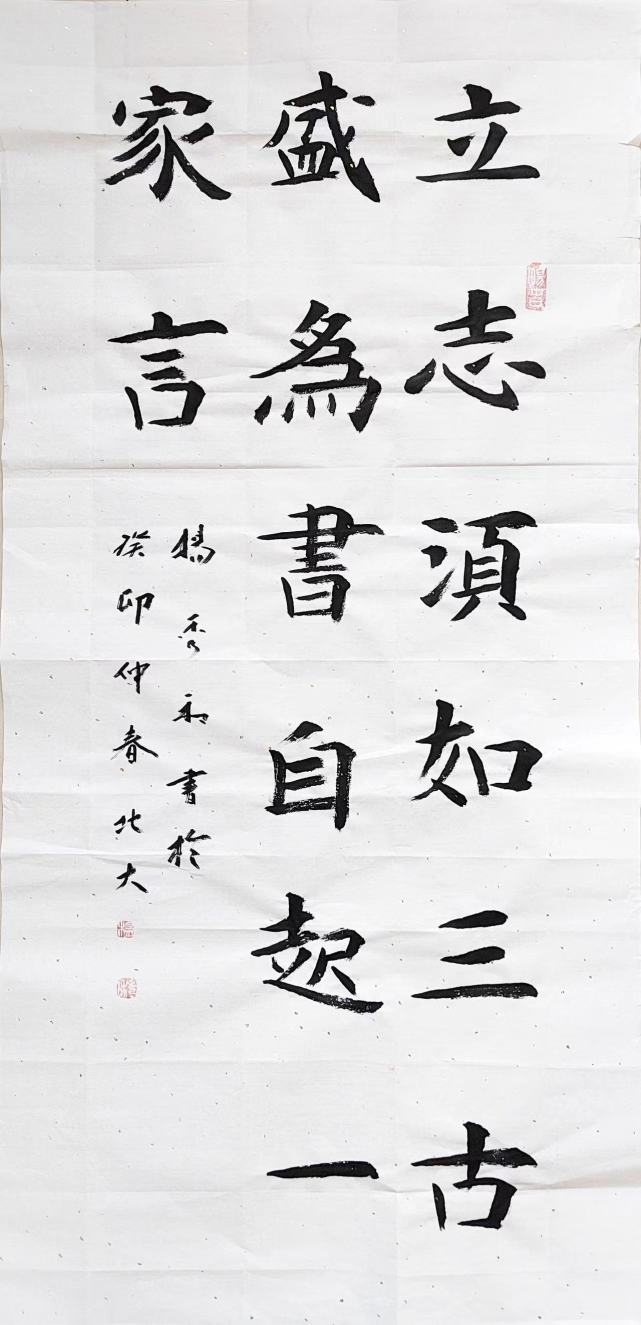 立志須如三古
盛為書自起一
家言
楊秀和書於
癸卯仲春北大